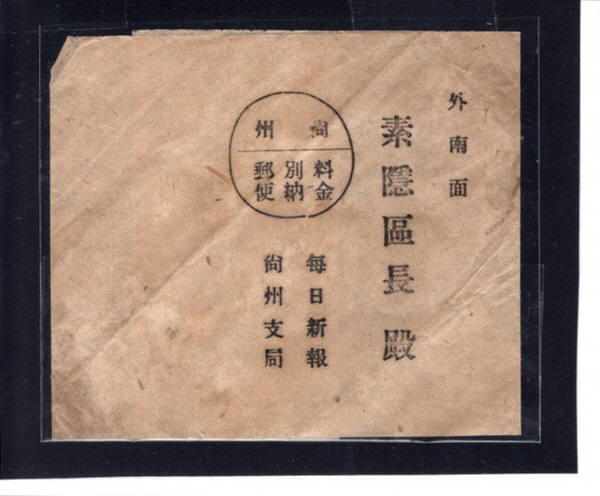 外南面
素隱區長殿
尙州
料金別納郵便
每日新報
尙州支局